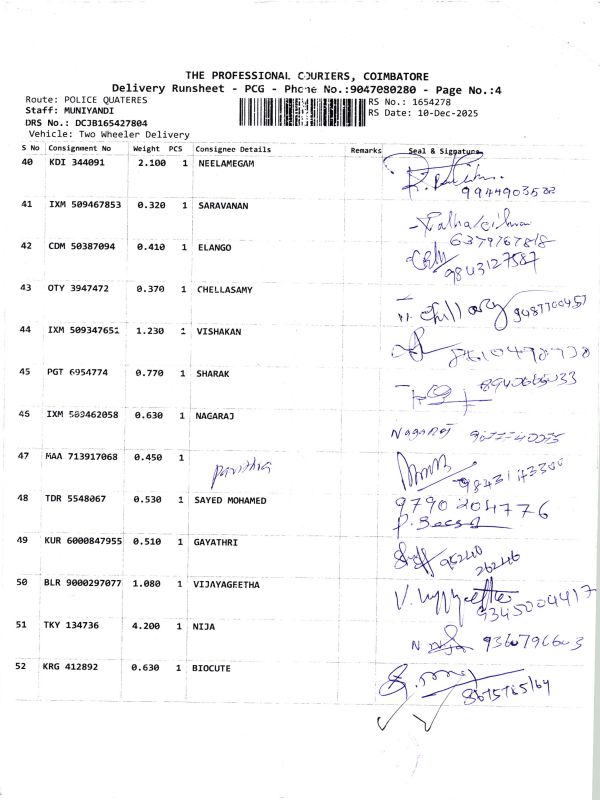 THE PROFESSIONAL COURIERS, COIMBATORE
Delivery Runsheet - PCG - Phone No.:9047080280 - Page No.:4
Route: POLICE QUATERES
Staff: MUNIYANDI
DRS No.: DCJB165427804
Vehicle: Two Wheeler Delivery
RS No.: 1654278
RS Date: 10-Dec-2025
S No Consignment No Weight PCS Consignee Details Remarks Seal & Signature
40 KDI 344091 2.100 1 NEELAMEGAM
41 IXM 509467853 0.320 1 SARAVANAN
6379767818
42 CDM 50387094 0.410 1 ELANGO
9843127587
43 OTY 3947472 0.370 1 CHELLASAMY
9487700457
44 IXM 509347651 1.230 1 VISHAKAN
45 PGT 6954774 0.770 1 SHARAK
46 IXM 509462058 0.630 1 NAGARAJ
Nagaraj
47 MAA 713917068 0.450 1
48 TDR 5548067 0.530 1 SAYED MOHAMED
9790204776
49 KUR 6000847955 0.510 1 GAYATHRI
95240
26246
50 BLR 9000297077 1.080 1 VIJAYAGEETHA
9345004417
51 TKY 134736 4.200 1 NIJA
9360796603
52 KRG 412892 0.630 1 BIOCUTE